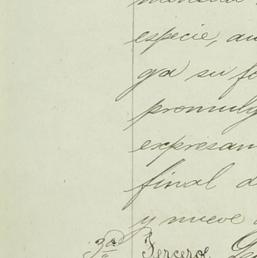 especie, au
ga su fo
promulg
expresam
final d
y nueve
3ª Tercero. Qu